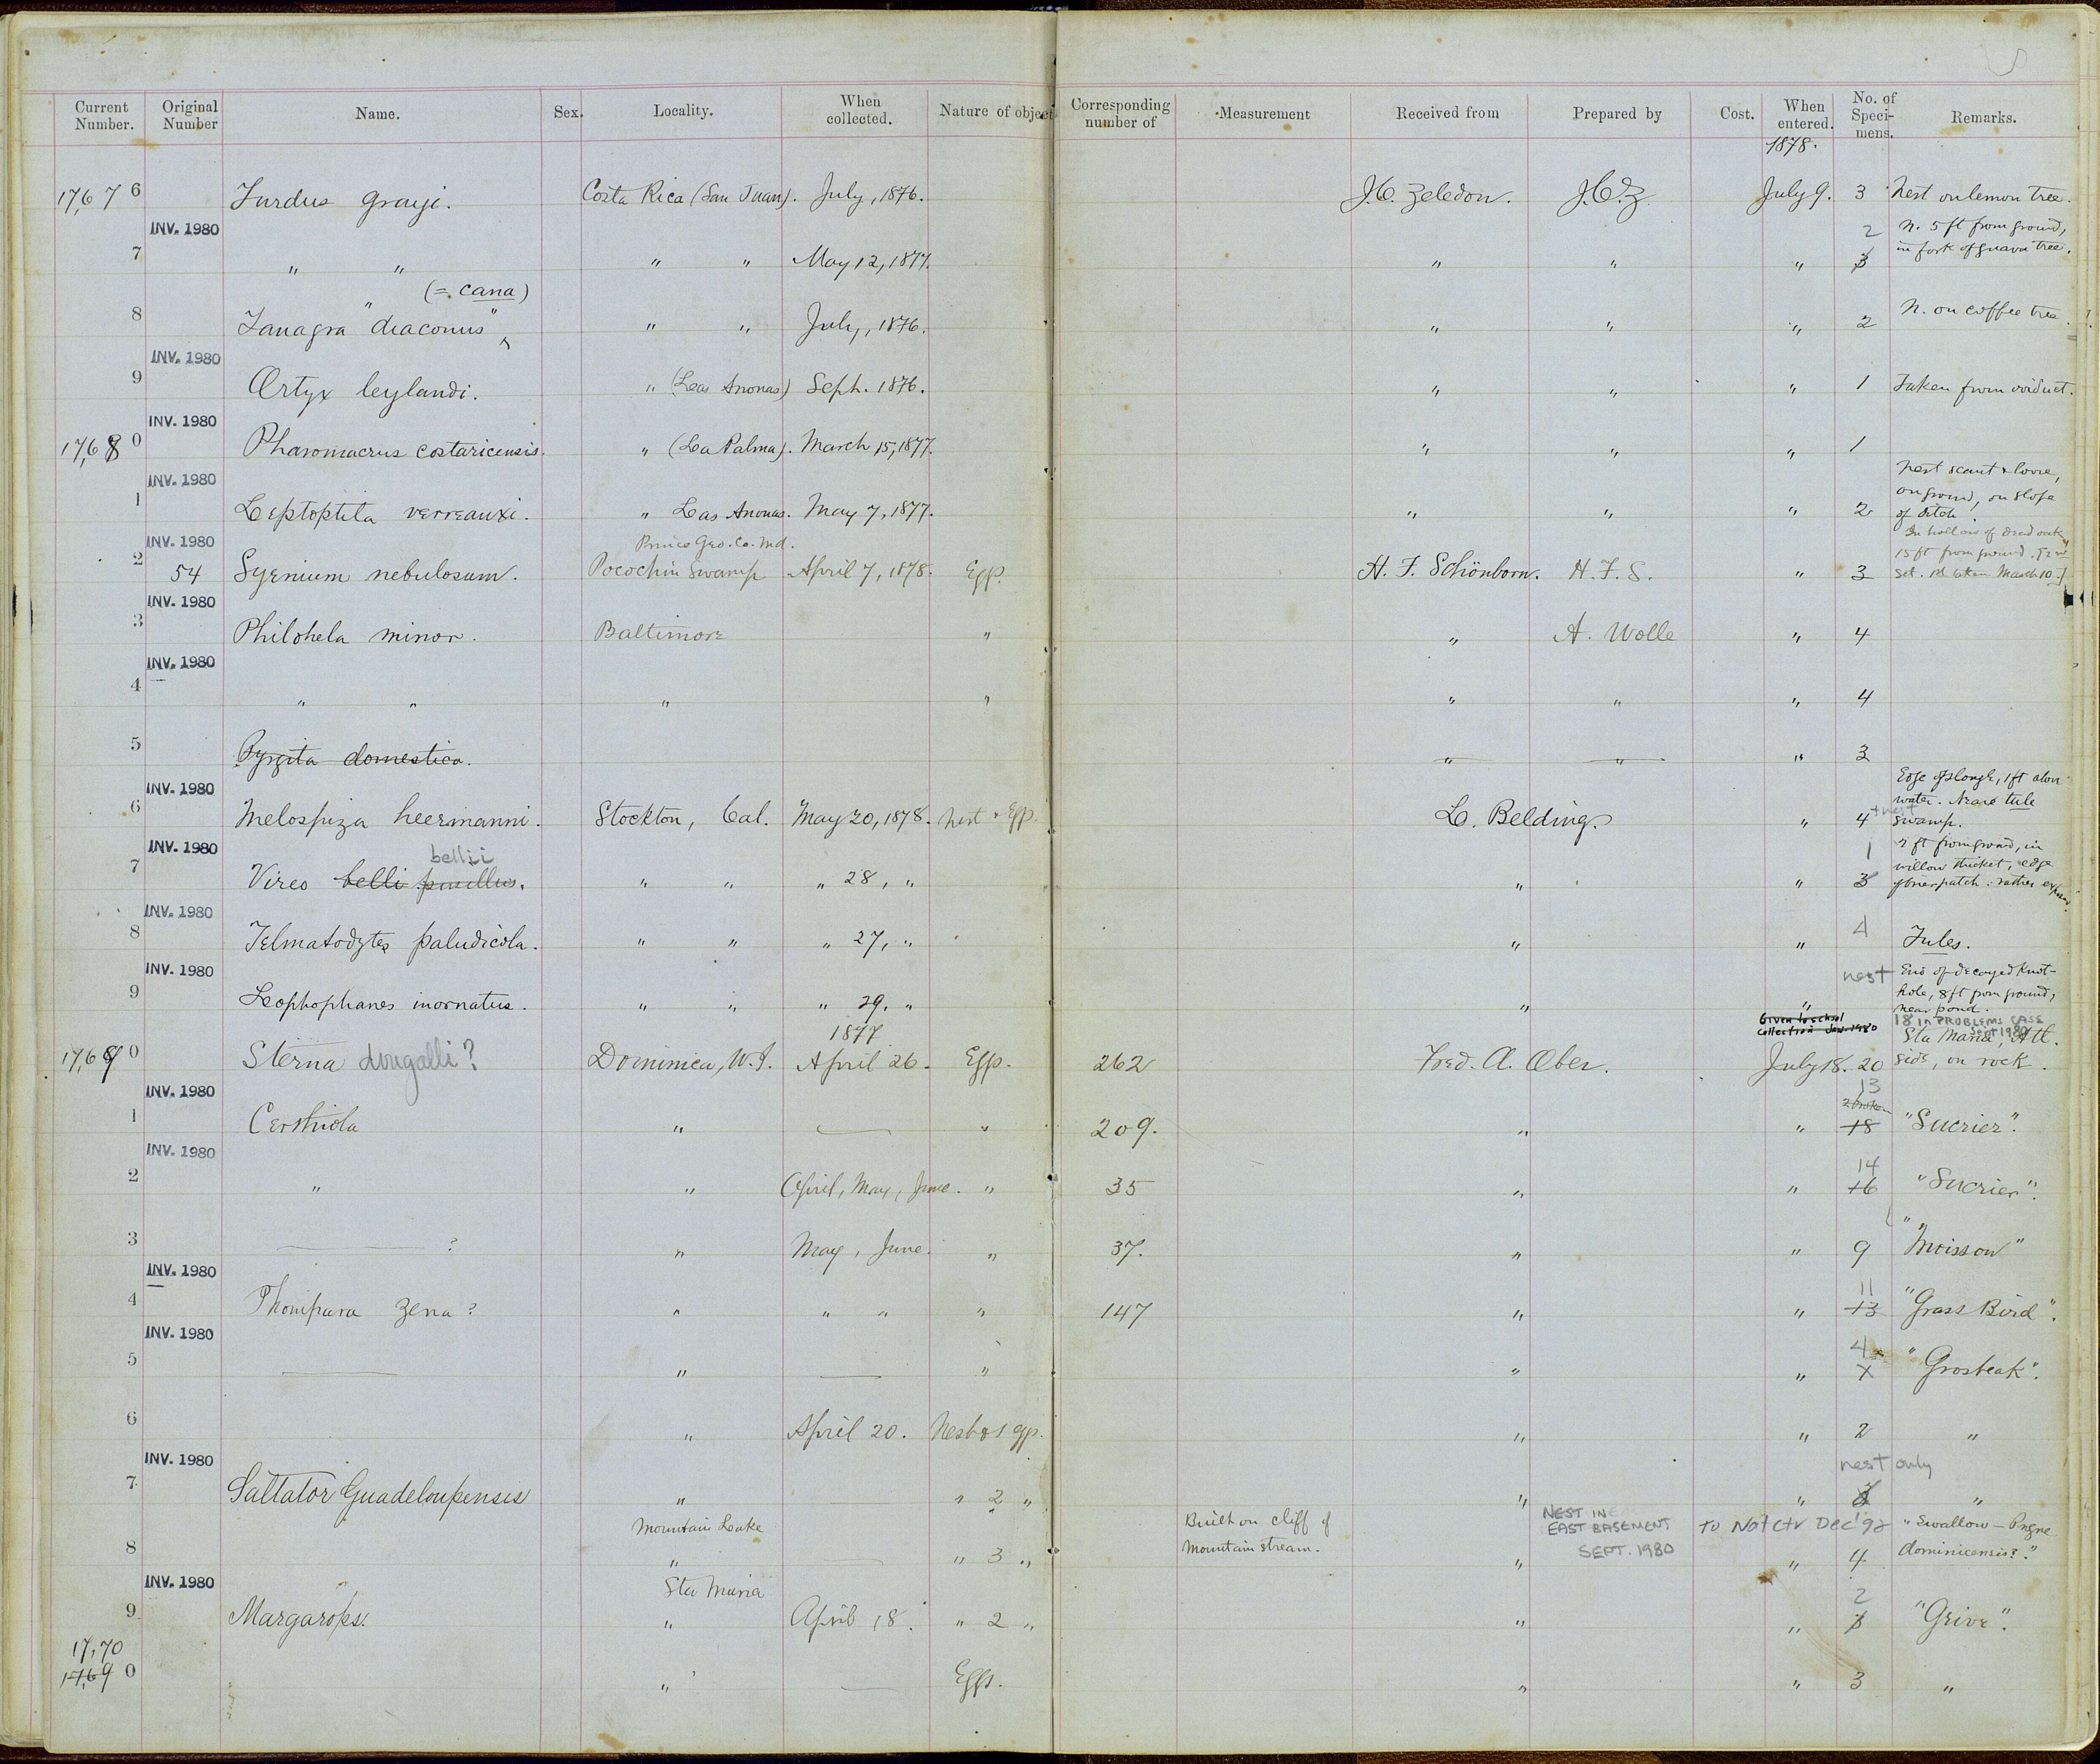 Current Number. Original Number Name. Sex. Locality. When collected. Nature of object Corresponding number of Measurement Received from Prepared by Cost. When entered. No. of Speci-mens. Remarks.
1878.
17,67 6 Turdus grayi. Costa Rica (San Juan). July, 1876. J.C. Zeledon. J.C.Z. July 9. 3 Nest on lemon tree.
INV. 1980 2 N. 5 ft from ground,
7 " " " " May 12, 1877. " " " 3 in fork of guava tree.
(= cana)
8 Tanagra "diaconus" " " July, 1876. " " " 2 N. on coffee tree.
INV. 1980
9 Ortyx leylandi. " (Las Anonas) Sept. 1876. " " " 1 Taken from oviduct.
INV. 1980
17,68 0 Pharomacrus costaricensis. " (La Palma). March 15, 1877. " " " 1
INV. 1980 Nest scant & loose,
1 Leptoptila verreauxi. " Las Anonas. May 7, 1877. " " " 2 on ground, on slope
of ditch.
INV. 1980 Prince Geo. Co. Md. In hollow of dead oak,
2 15 ft from ground. [2nd
54 Syrnium nebulosum. Pocochin Swamp April 7, 1878. Egg. H. F. Schönborn. H. F. S. " 3 set. 1st taken March 10.]
INV. 1980
3 Philohela minor. Baltimore " " A. Wolle " 4
INV. 1980
4 " " " " " " " 4
5 Pyrgita domestica. " " " 3
INV. 1980 Edge of slough, 1 ft above
water. Near tule
6 Melospiza heermanni. Stockton, Cal. May 20, 1878. Nest & Egg. L. Belding. " 4 + nest swamp.
INV. 1980 bellii 1 2 ft from ground, in
willow thicket, edge
7 Vireo belli pusillus. " " " 28, " " " 3 of brier patch: rather exposed.
INV. 1980 4
8 Telmatodytes paludicola. " " " 27, " " " Tules.
INV. 1980 nest End of decayed knot-
9 Lophophanes inornatus. " " " 29, " " " hole, 8 ft from ground,
near pond.
1877 Given to school collection Jan. 1980 18 in PROBLEMS CASE Sept 1980
Sta Maria, Atl.
17,69 0 Sterna dougalli? Dominica, W.I. April 26. Egg. 262 Fred. A. Ober. July 18. 20 side, on rock.
INV. 1980 13
2 broken
1 Certhiola " " 209. " " 18 "Sucrier".
INV. 1980 14
2 " " April, May, June. " 35 " " 16 "Sucrier".
3 ? " May, June. " 37. " " 9 "Moisson"
INV. 1980 11
4 Phonipara zena? " " " " 147 " " 13 "Grass Bird".
INV. 1980 4
5 " " " " "Grosbeak".
6 " April 20. " " 2 "
INV. 1980 nest only
7 Saltator Guadeloupensis " " 2 " " " "
Mountain Lake Built on cliff of NEST IN EAST BASEMENT SEPT. 1980 To Nat Ctr Dec '92 "Swallow – Progne
8 " " 3 " Mountain stream. " " 4 dominicensis?."
INV. 1980 Sta Maria 2
9 Margarops. " April 18. " 2 " " " 3 "Grive".
17,70
17,69 0 " Eggs. " " 3 "